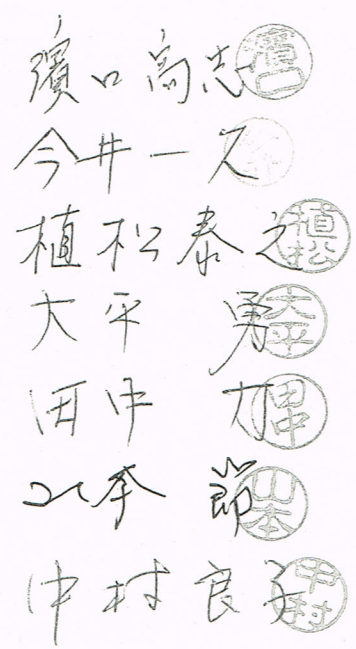 濱口高志 濱口
今井一久
植松泰之 植松
大平 勇 大平
田中 力 田中
山本 節 山本
中村良子 中村